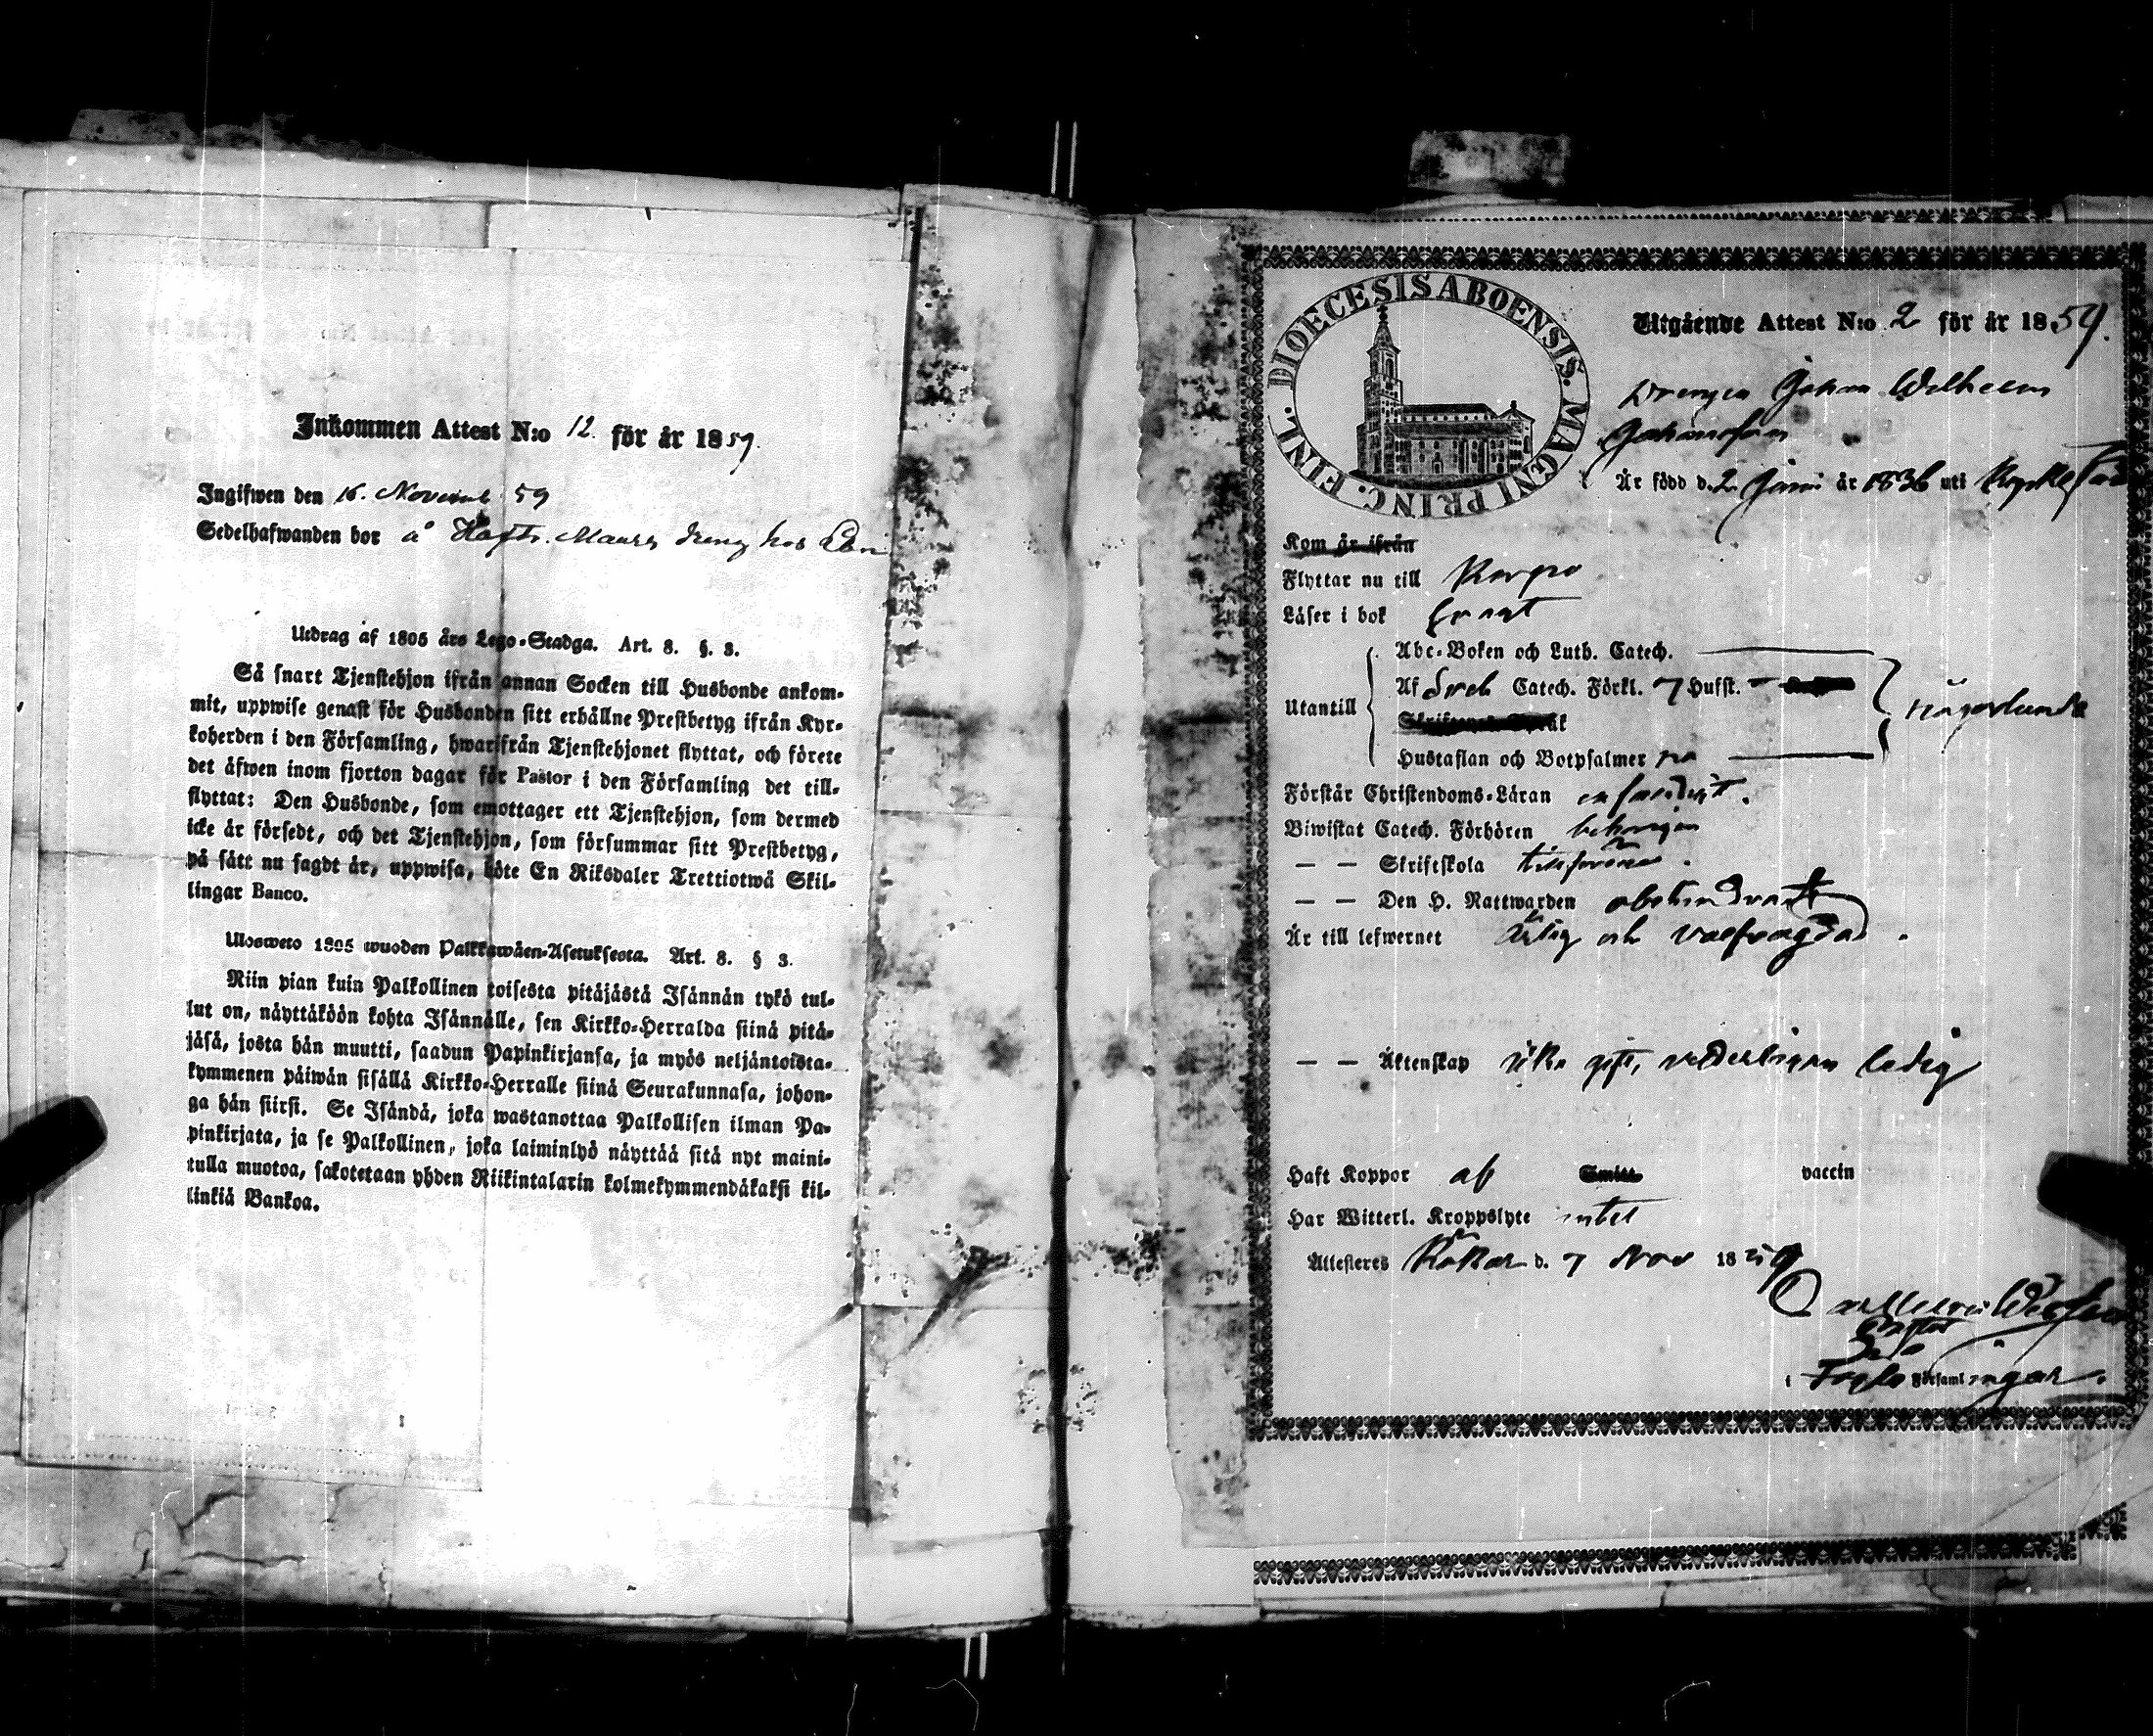 Inkommen Attest N:o 12. för år 1859.
Ingifwen den 16. Novemb 59
Sedelhafwanden bor å Hafts. Maurs dreng hos
Utdrag af 1805 års Lego-Stadga. Art. 8. §. 3.
Så snart Tjenstehjon ifrån annan Socken till Husbonde ankom-
mit, uppwise genast för Husbonden sitt erhållne Prestbetyg ifrån Kyr-
koherden i den Församling, hwarifrån Tjenstehjonet flyttat, och förete
det äfwen inom fjorton dagar för Pastor i den Församling det till-
flyttat: Den Husbonde, som emottager ett Tjenstehjon, som dermed
icke är försedt, och det Tjenstehjon, som försummar sitt Prestbetyg,
på sätt nu sagdt är, uppwisa, böte En Riksdaler Trettiotwå Skil-
lingar Banco.
Ulosweto 1805 wuoden Palkkawäen-Asetuksesta. Art. 8. § 3.
Niin pian kuin Palkollinen toisesta pitäjästä Isännän tykö tul-
lut on, näyttäköön kohta Isännälle, sen Kirkko-Herralda siinä pitä-
jäsä, josta hän muutti, saadun Papinkirjansa, ja myös neljäntoista-
kymmenen päiwän sisällä Kirkko-Herralle siinä Seurakunnasa, johon-
ga hän siirsi. Se Isändä, joka wastanottaa Palkollisen ilman Pa-
pinkirjata, ja se Palkollinen, joka laiminlyö näyttää sitä nyt maini-
tulla muotoa, sakotetaan yhden Riikintalarin kolmekymmendäkaksi kil-
linkiä Bankoa.
DIOECESIS ABOENSIS. MAGNI PRINC. FINL.
Utgående Attest N:o 2 för år 1859.
Drengen Johan Wilhelm
Johansson
Är född d. 2 Juni år 1836 uti
Kom är ifrån
Flyttar nu till Korpo
Läser i bok
Abc-Boken och Luth. Catech.
Utantill
Af Sveb Catech. Förkl. 7 Husst.
någorlunda
Hustaflan och Botpsalmer
Förstår Christendoms-Läran enfaldigt.
Biwistat Catech. Förhören behörigen
— — Skriftskola tillförene.
— — Den H. Nattwarden obehindradt
Är till lefwernet ärlig och välfrägdad.
— — Äktenskap icke gift, vederligen ledig
Haft Koppor af vaccin
Har Witterl. Kroppslyte intet
Attesteres Kökar d. 7 Nov 1859
Pastor
i Föglö Församlingar.